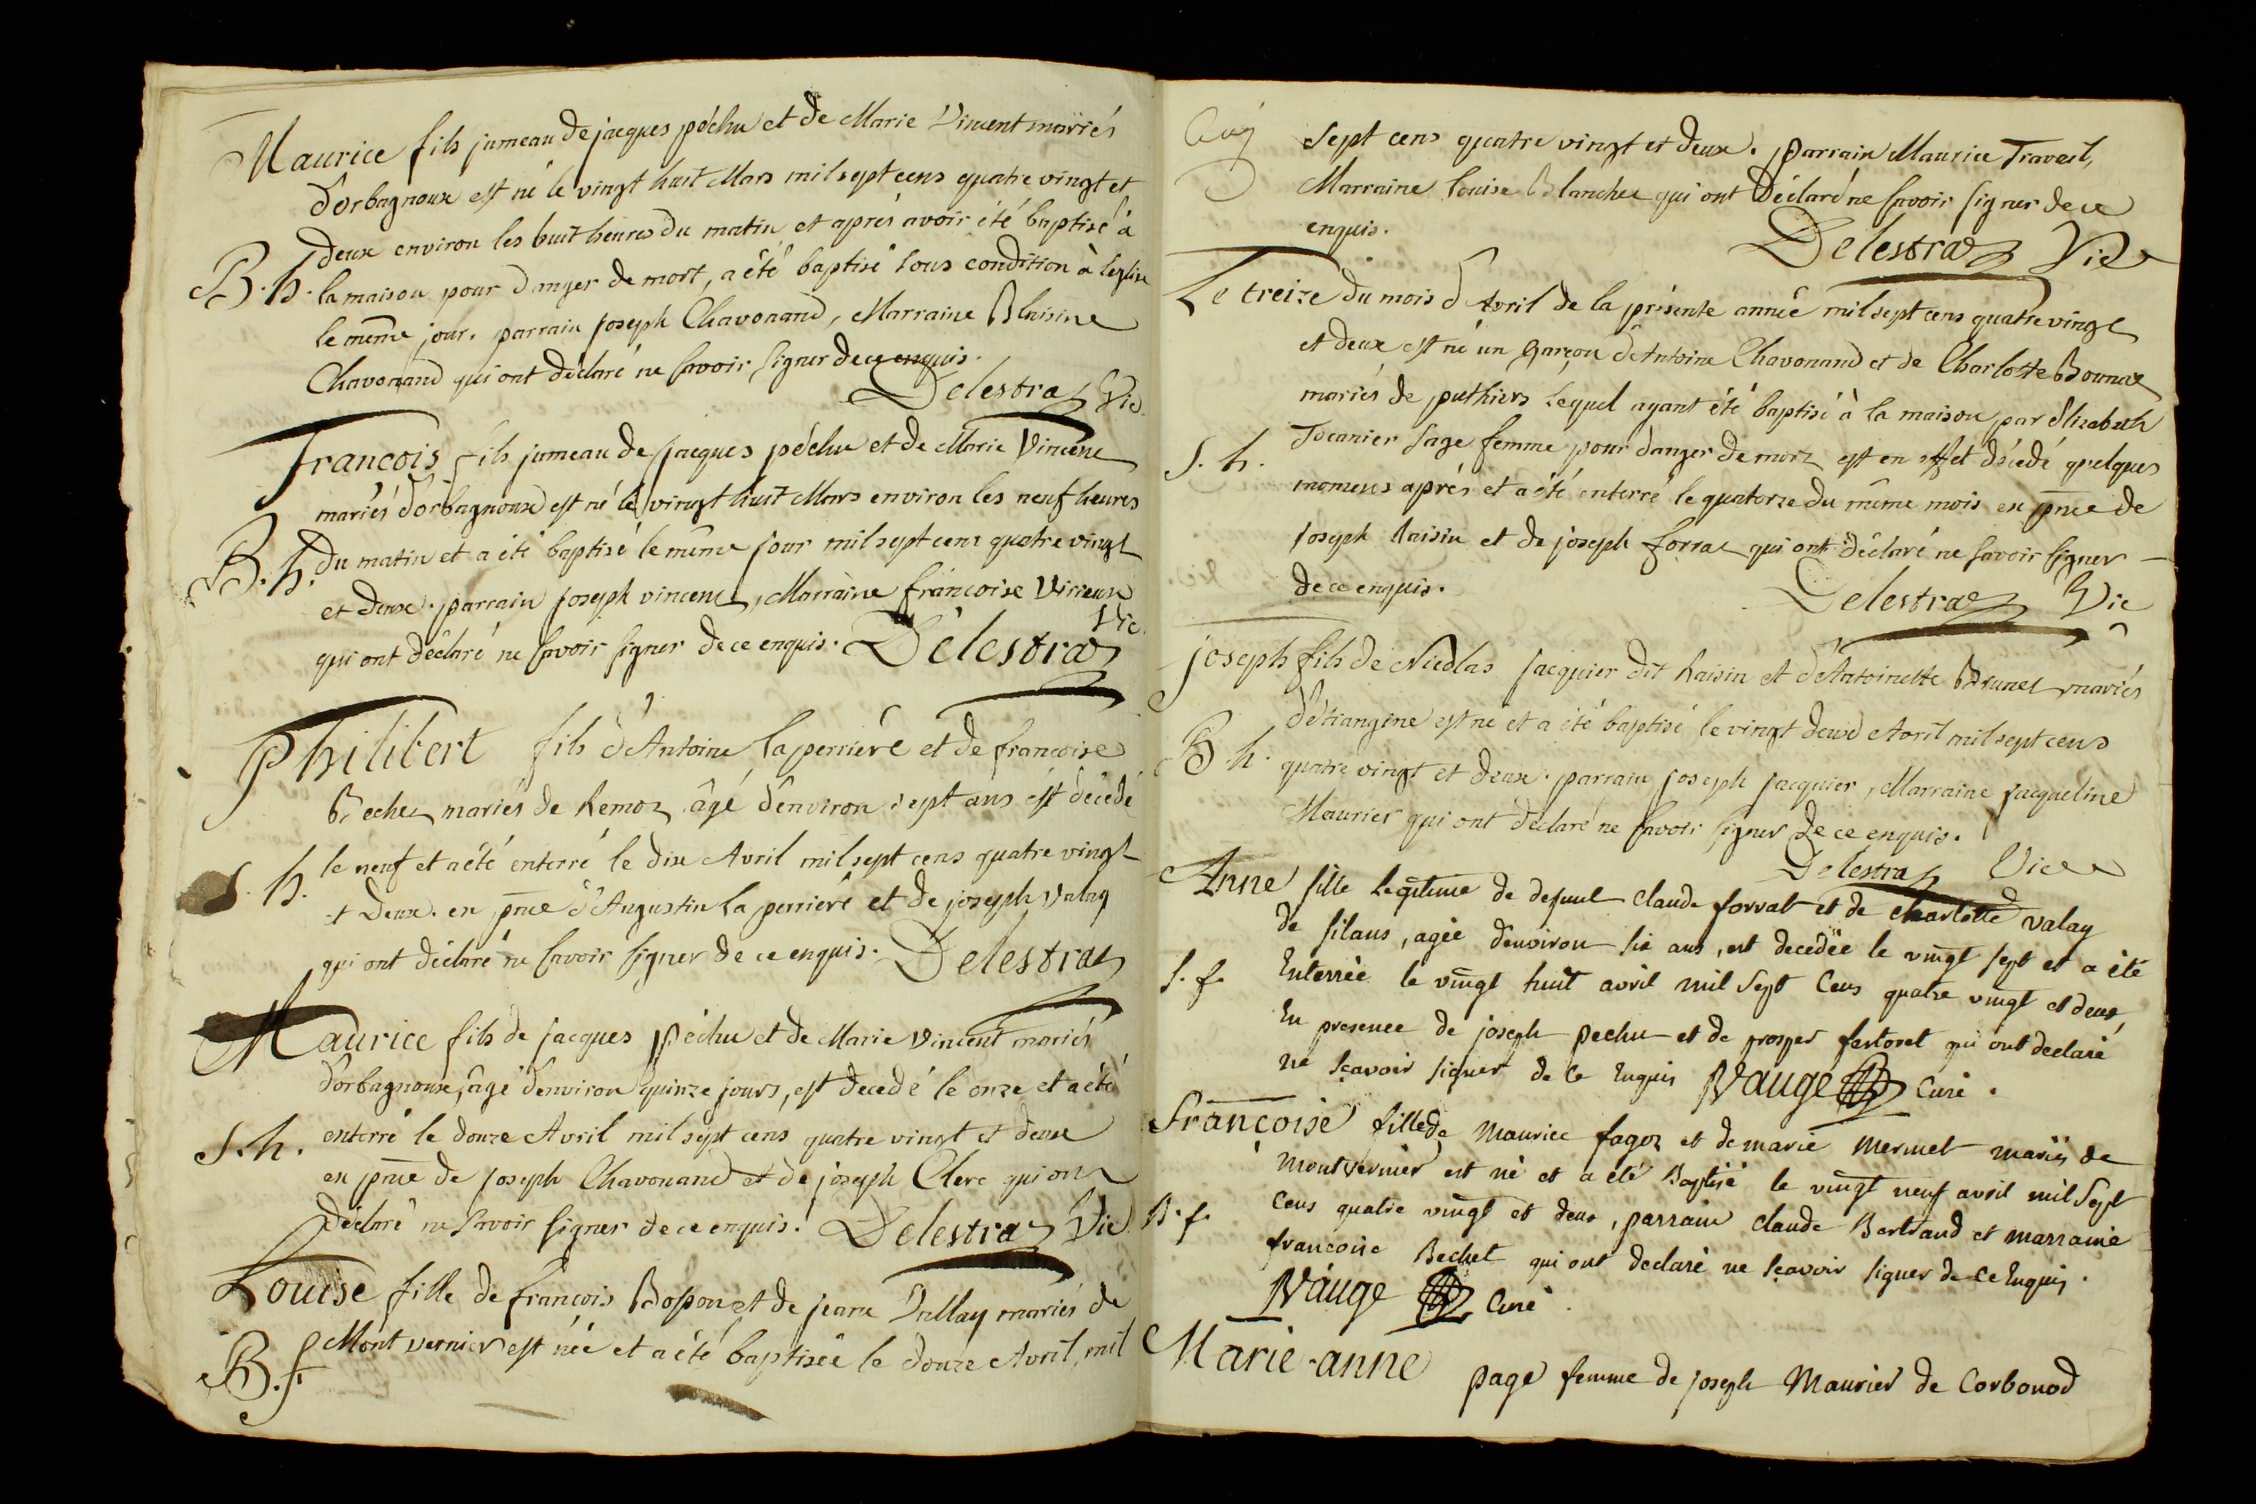 Maurice fils jumeau de jacques péchu et de Marie Vincent mariés
d'orbagnoux est né le vingt huit Mars mil sept cens quatre vingt et
deux environ les huit heures du matin et aprés avoir été baptisé à
B. h. la maison pour danger de mort, a été baptisé sous condition à l'eglise
le même jour. parrain joseph Chavonand, Marraine Blaisine
Chavonand qui ont déclaré ne savoir signer de ce enquis.
Delestraz Vic.
francois fils jumeau de jacques péchu et de Marie Vincent
mariés d'orbagnoux est né le vingt huit Mars environ les neuf heures
B. h. du matin et a été baptisé le même jour mil sept cens quatre vingt
et deux. parrain joseph vincent, Marraine françoise Virieux
qui ont déclaré ne savoir signer de ce enquis. Delestraz Vic.
Philibert fils d'Antoine laperriere et de francoise
Bechet mariés de Remoz âgé d'environ sept ans est décédé
S. h. le neuf et a été enterré le dix Avril mil sept cens quatre vingt
et deux. en pnce d'Augustin la perriere et de joseph valay
qui ont déclaré ne savoir signer de ce enquis. Delestraz
Maurice fils de jacques péchu et de Marie Vincent mariés
d'orbagnoux, âgé d'environ quinze jours, est decedé le onze et a été
S. h. enterré le douze Avril mil sept cens quatre vingt et deux
en pnce de joseph Chavonand et de joseph Clerc qui ont
déclaré ne savoir signer de ce enquis. Delestraz Vic
Louise fille de françois Bosson et de jeane Vallay mariés de
B. f. Mont vernier est née et a été baptisée le douze Avril, mil
sept cens quatre vingt et deux. parrain Maurice Travail,
Marraine louise Blanchet qui ont déclaré ne savoir signer de ce
enquis.
Delestraz Vic
Le treize du mois d'Avril de la présente année mil sept cens quatre vingt
et deux est né un garçon d'Antoine Chavonand et de Charlotte
mariés de puthiers lequel ayant été baptisé à la maison par Elizabeth
S. h. Tocanier sage femme pour danger de mort est en effet décédé quelques
momens aprés et a été enterré le quatorze du même mois en pnce de
joseph Raisin et de joseph forrat qui ont déclaré ne savoir signer
de ce enquis.
Delestraz Vic
joseph fils de Nicolas jacquier dit Raisin et d'Antoinette Brunet mariés
d'étrangine est né et a été baptisé le vingt deux Avril mil sept cens
B h. quatre vingt et deux. parrain joseph jacquier, Marraine jacqueline
Maurier qui ont déclaré ne savoir signer de ce enquis.
Delestraz Vic
Anne fille legitime de defunt claude forrat et de charlotte valay
de silans, agée d'environ six ans, est decedée le vingt sept et a été
S. f. Enterrée le vingt huit avril mil sept cens quatre vingt et deux,
En presence de joseph pechu et de prosper fertoret qui ont declaré
ne sçavoir signer de ce Enquis Vauge Curé.
françoise fille de Maurice fagoz et de marie Mermet mariés de
Montvernier est né et a été Baptisé le vingt neuf avril mil sept
B. f. cens quatre vingt et deux, parrain claude Bertrand et marraine
francoise Bechet qui ont declaré ne sçavoir signer de ce Enquis.
Vauge Curé.
Marie-anne page femme de joseph Maurier de Corbonod